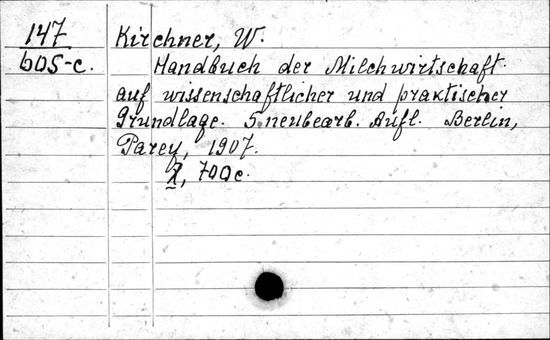 147
605-c.
Kirchner, W.
Handbuch der Milchwirtschaft
auf wissenschaftlicher und praktischer
Grundlage. 5 neubearb. Aufl. Berlin,
Parey, 1907.
X, 700 c.